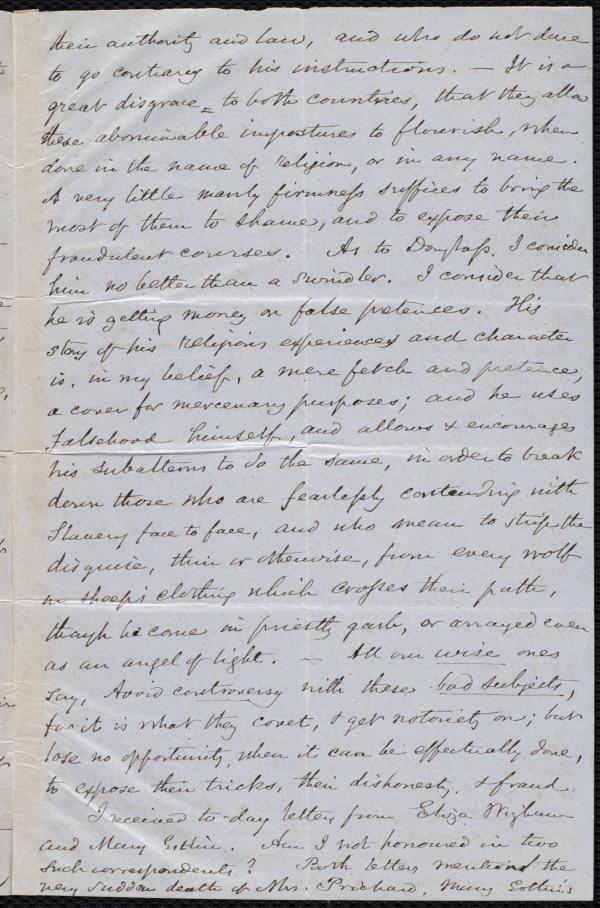 their authority and law, and who do not dare
to go contrary to his instructions. — It is a
great disgrace, to both countries, that they allow
these abominable impostures to flourish, when
done in the name of religion, or in any name.
A very little manly firmness suffices to bring the
most of them to shame, and to expose their
fraudulent courses. As to Douglass, I consider
him no better than a swindler. I consider that
he is getting money on false pretences. His
story of his religious experiences and character
is, in my belief, a mere fetch and pretence,
a cover for mercenary purposes; and he uses
falsehood himself, and allows & encourages
his subalterns to do the same, in order to break
down those who are fearlessly contending with
Slavery face to face, and who mean to strip the
disguise, thin or otherwise, from every wolf
in sheep's clothing which crosses their path,
though he come in priestly garb, or arrayed even
as an angel of light. — All our wise ones
say, Avoid controversy with these bad subjects,
for it is what they covet, & get notoriety on; but
lose no opportunity, when it can be effectually done,
to expose their tricks, their dishonesty, & fraud.
I received to-day letters from Eliza Wigham
and Mary Estlin. Am I not honoured in two
such correspondents? Both letters mentioned the
very sudden death of Mrs. Prichard, Mary Estlin's